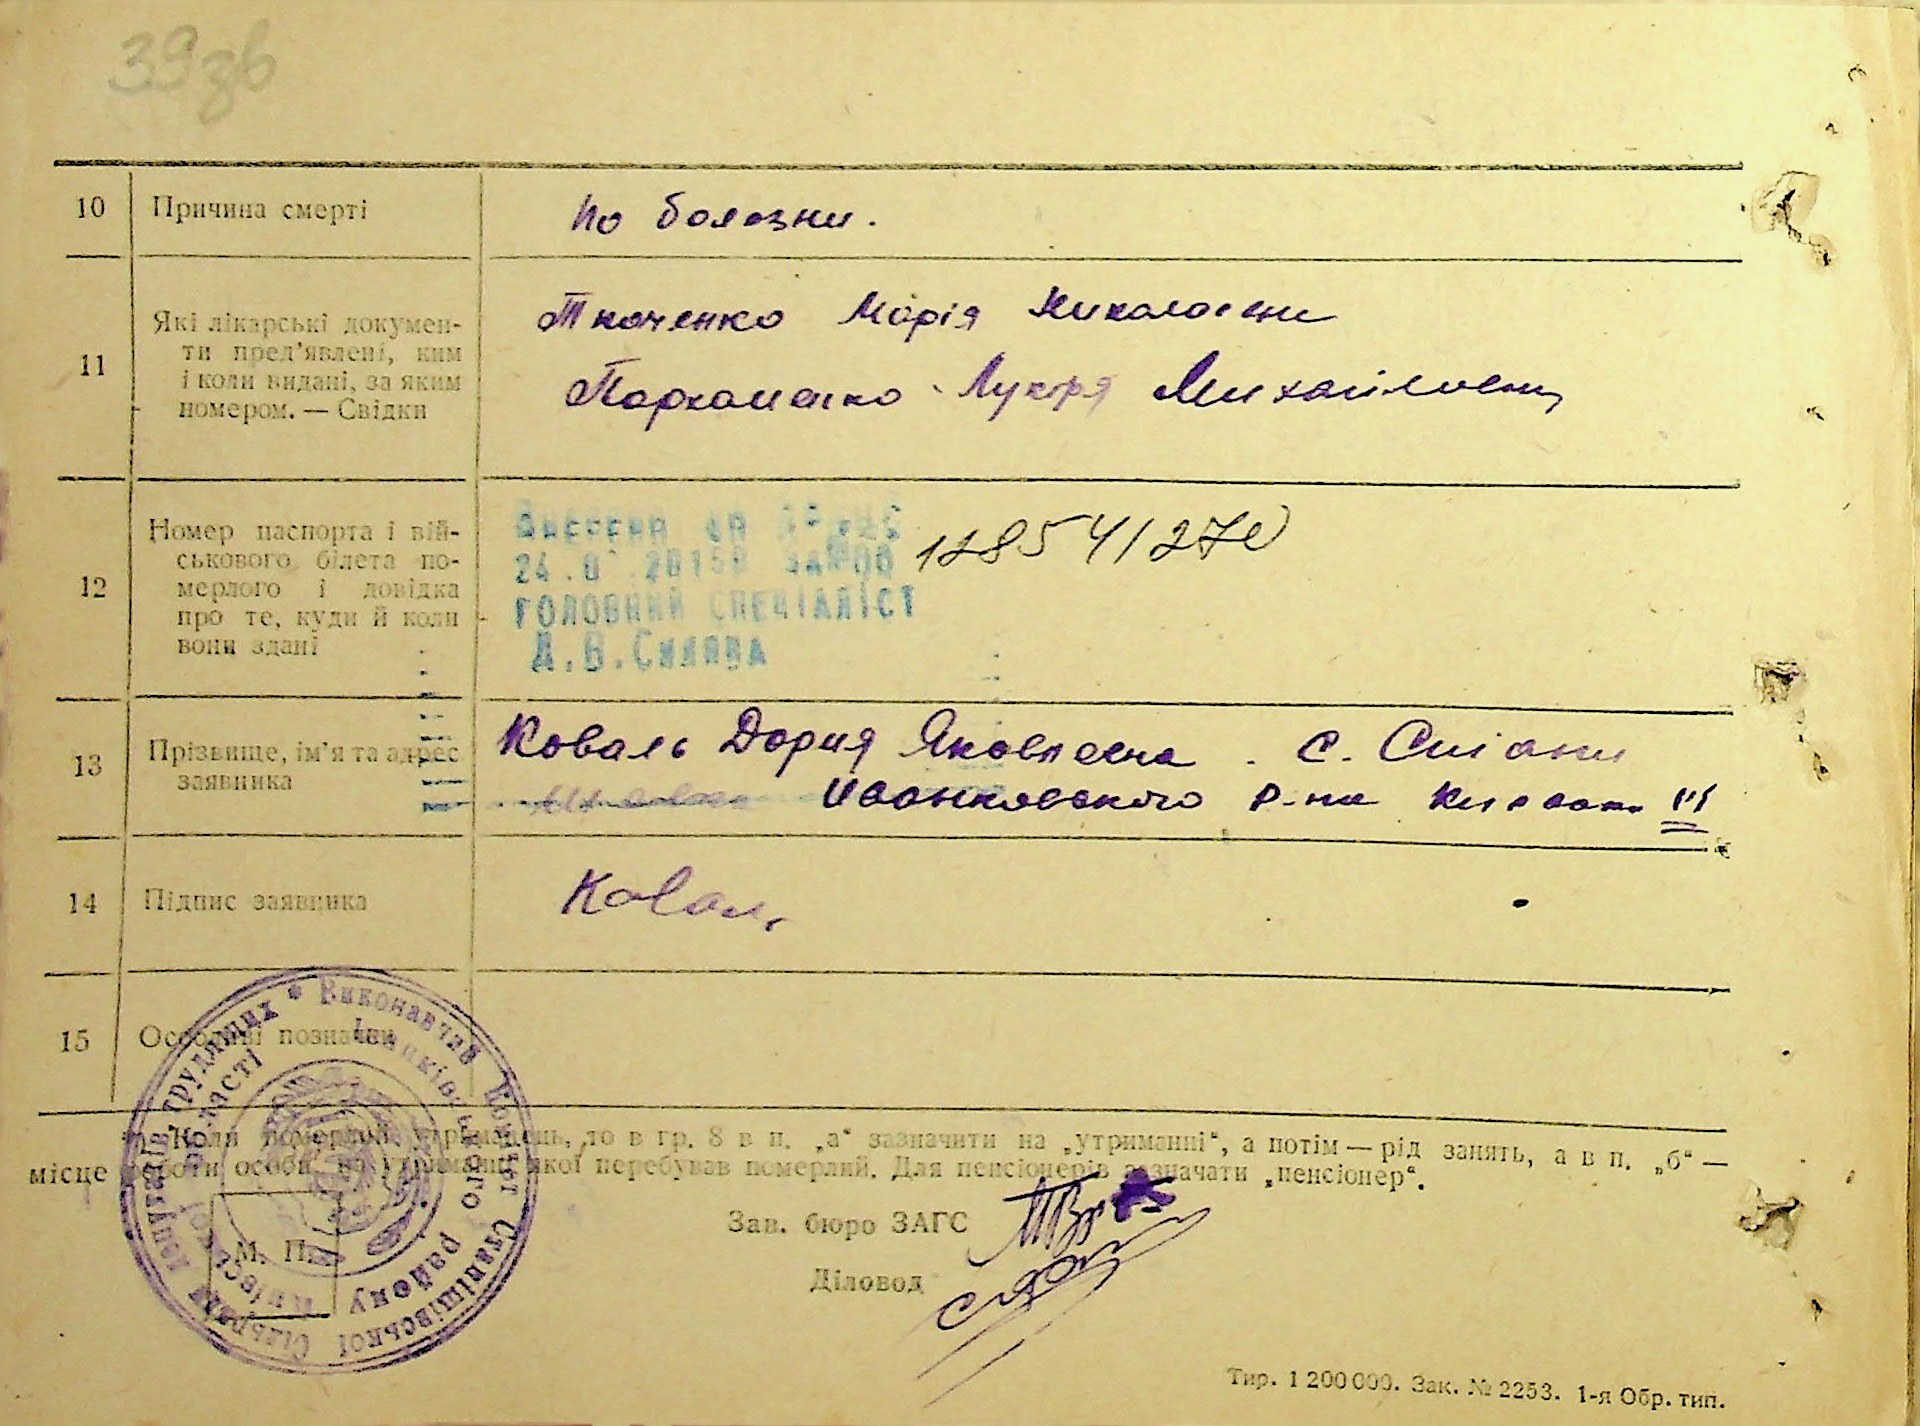 39зв
10 Причина смерті
по болезни.
11 Які лікарські докумен-
ти пред'явлені, ким
і коли видані, за яким
номером. — Свідки
Ткаченко Марія Николаевн
Пархоменко Михайловн
12 Номер паспорта і вій-
ськового білета по-
мерлого і довідка
про те, куди й коли
вони здані
ГОЛОВНИЙ СПЕЦІАЛІСТ
13 Прізвище, ім'я та адрес
заявника
Коваль Дария Яковлевна. с.
Иванковского р-на
14 Підпис заявника
Коваль
15 Особливі позначки
*) Коли померлий утриманець, то в гр. 8 в п. „а“ зазначити на „утриманні“, а потім — рід занять, а в п. „б“ —
місце роботи особи, на утриманні якої перебував померлий. Для пенсіонерів зазначати „пенсіонер“.
Зав. бюро ЗАГС
Діловод
М. П.
Виконавчий Комітет Станішівської Сільради депутатів трудящих
Іванківського району Київської області
Тир. 1 200 000. Зак. № 2253. 1-я Обр. тип.